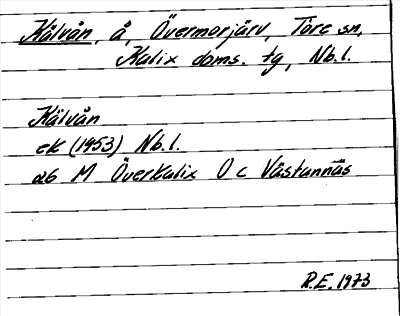 Kälvån, å, Övermorjärv, Töre sn,
Kalix doms. tg, Nb.l.
Kälvån
ek (1953) Nb.l.
26 M Överkalix O c Västannäs
R.E. 1973